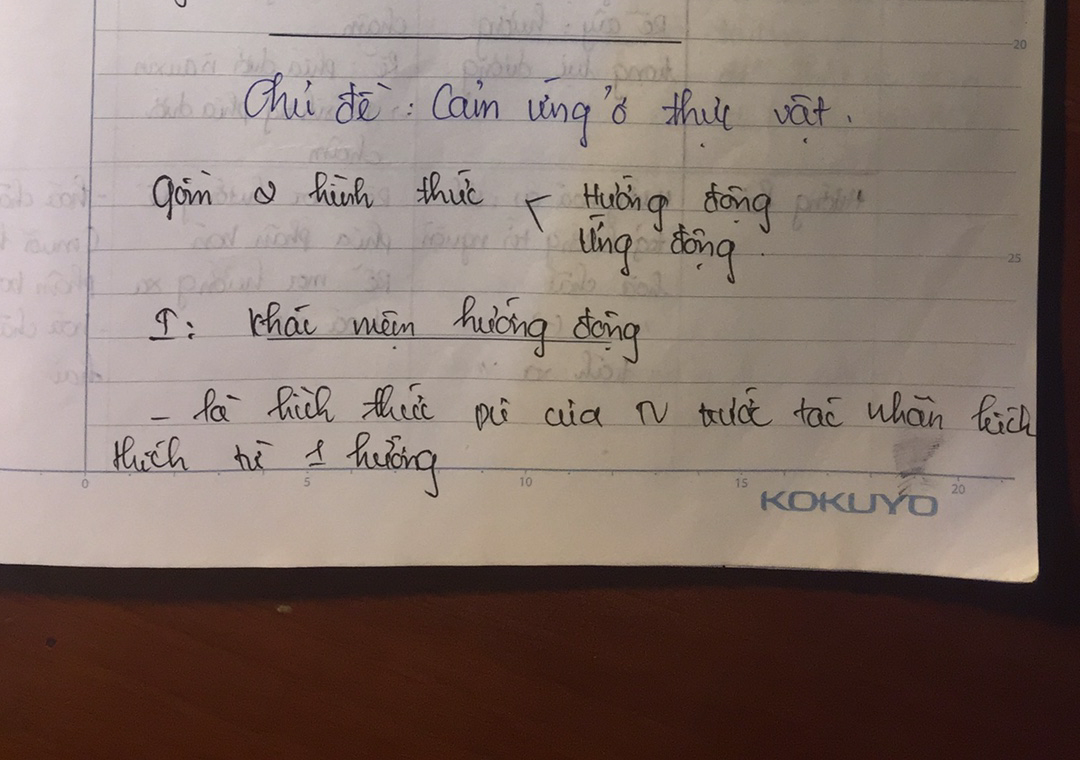 20
Chủ đề: Cảm ứng ở thực vật.
Gồm 2 hình thức < Hướng động
Ứng động.
25
I: Khái niệm hướng động
- là hình thức pứ của TV trước tác nhân kích
thích từ 1 hướng
0 5 10 15 20
KOKUYO